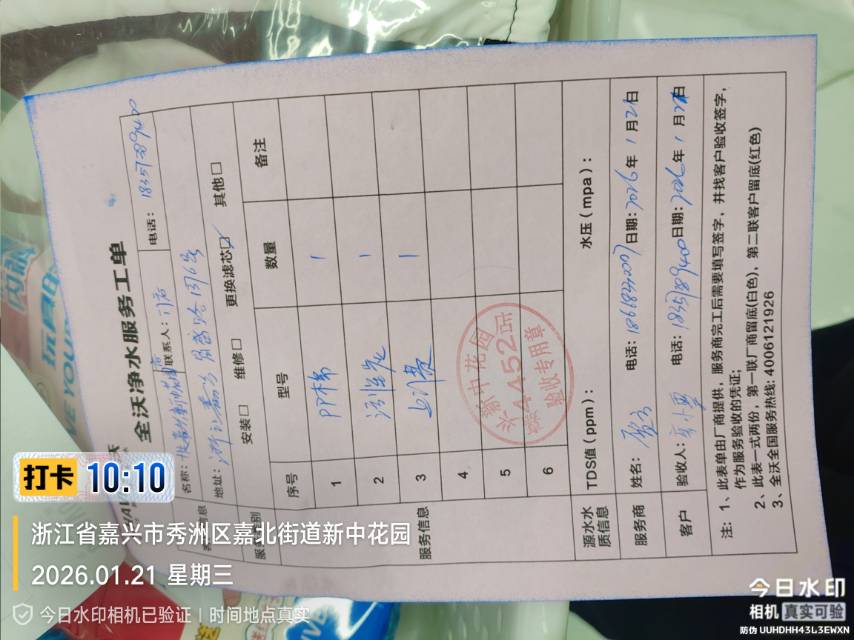 全沃净水服务工单
名称：
联系人：
电话：18357389400
地址：
1376号
服务类别
安装□ 维修□ 更换滤芯☑ 其他□
服务信息
序号 型号 数量 备注
1 PP棉 1
2 1
3 上门费 1
4
5
6
新中花园
4452店
验收专用章
源水水质信息
TDS值（ppm）：
水压（mpa）：
服务商
姓名：
电话：
日期：2026年1月21日
客户
验收人：
电话：18357389400
日期：2026年1月21日
注：1、此表单由厂商提供，服务商完工后需要填写签字，并找客户验收签字，
作为服务验收的凭证；
2、此表一式两份：第一联厂商留底(白色)，第二联客户留底(红色)
3、全沃全国服务热线：4006121926
打卡 10:10
浙江省嘉兴市秀洲区嘉北街道新中花园
2026.01.21 星期三
今日水印相机已验证 | 时间地点真实
今日水印
相机 真实可验
防伪 UUHDHH43L3EWXN